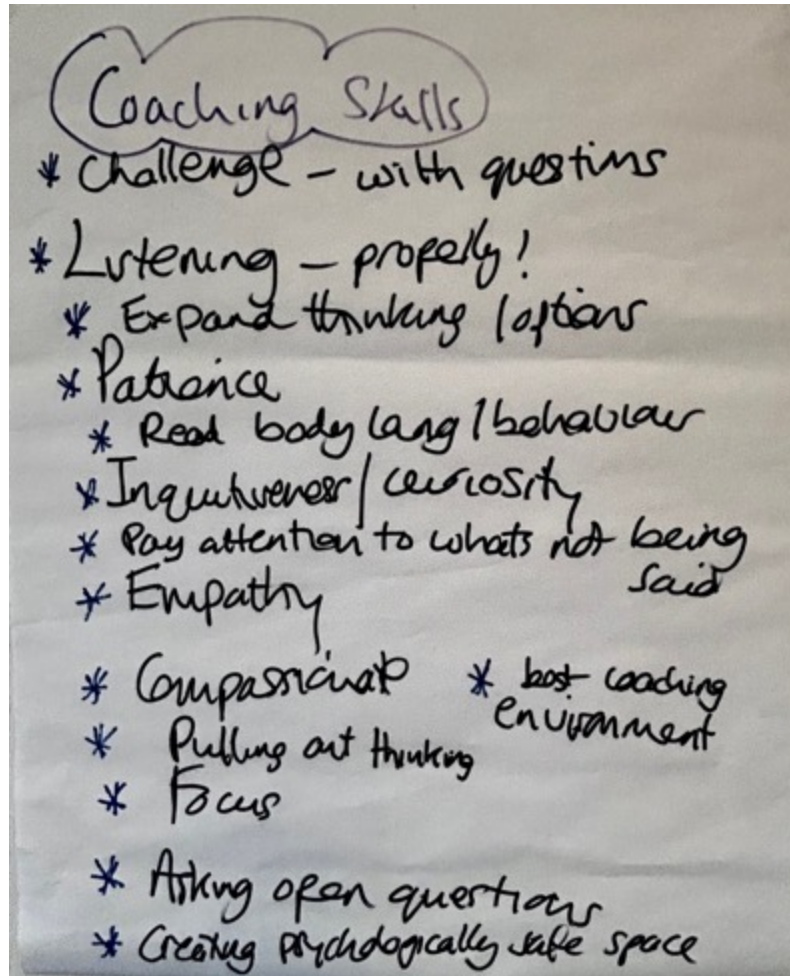 Coaching Skills
* Challenge - with questions
* Listening - properly!
* Expand thinking / options
* Patience
* Read body lang / behaviour
* Inquisitiveness / curiosity
* Pay attention to whats not being
said
* Empathy
* Compassionate
* best coaching
environment
* Pulling out thinking
* Focus
* Asking open questions
* Creating psychologically safe space